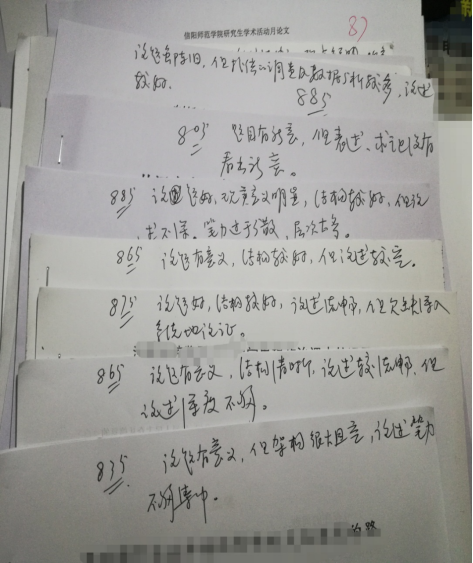 信阳师范学院研究生学术活动月论文
87
论题虽陈旧,但扎实的调查及数据分析较多,论述
较好。
885
805 题目有新意,但表述、求证没有
看出新意。
885 论题好,现实意义明显,结构较好,但论
述不深。笔力过于分散,层次太多。
865 论题有意义,结构较好,但论述较空。
875 论题好,结构较好,论述流畅,但欠缺深入
系统地论证。
865 论题有意义,结构清晰,论述较流畅,但
论述深度不够。
835 论题有意义,但架构很大且空,论述笔力
不够集中。